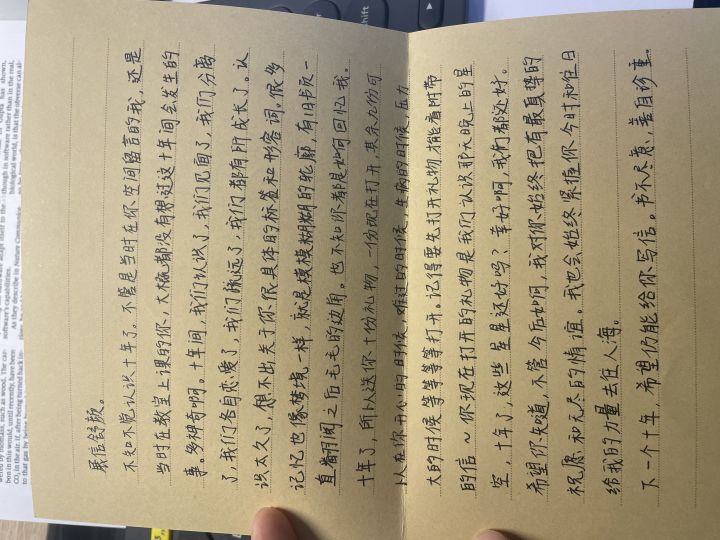 展信舒颜。
不知不觉认识十年了。不管是当时在你空间留言的我，还是
当时在教室上课的你，大概都没有想过这十年间会发生的
事。多神奇啊。十年间，我们认识了，我们见面了，我们分离
了，我们各自恋爱了，我们疏远了，我们都有所成长了。认
识太久了，想不出关于你很具体的标签和形容词。很多
记忆也像梦境一样，就是模模糊糊的轮廓，有旧书页一
直翻阅之后毛毛的边角。也不知你都是如何回忆我。
十年了，所以送你十份礼物，一份现在打开，其余九份可
以在你开心的时候，难过的时候，生病的时候，压力
大的时候等等等等打开。记得要先打开礼物才能看附带
的信～你现在打开的礼物是我们认识那天晚上的星
空，十年了，这些星星还好吗？幸好啊，我们都还好。
希望你知道，不管今后如何，我对你始终抱有最真挚的
祝愿和无尽的情谊。我也会始终紧握你今时和往日
给我的力量去往人海。
下一个十年，希望仍能给你写信。书不尽意，善自珍重。
though in software rather than in the real,
biological world, is that the obverse can al-
software's capabilities.
As they describe in Nature Communica-
bon in this would, until recently, have been
CO₂ in the air. If after being turned back in-
shift